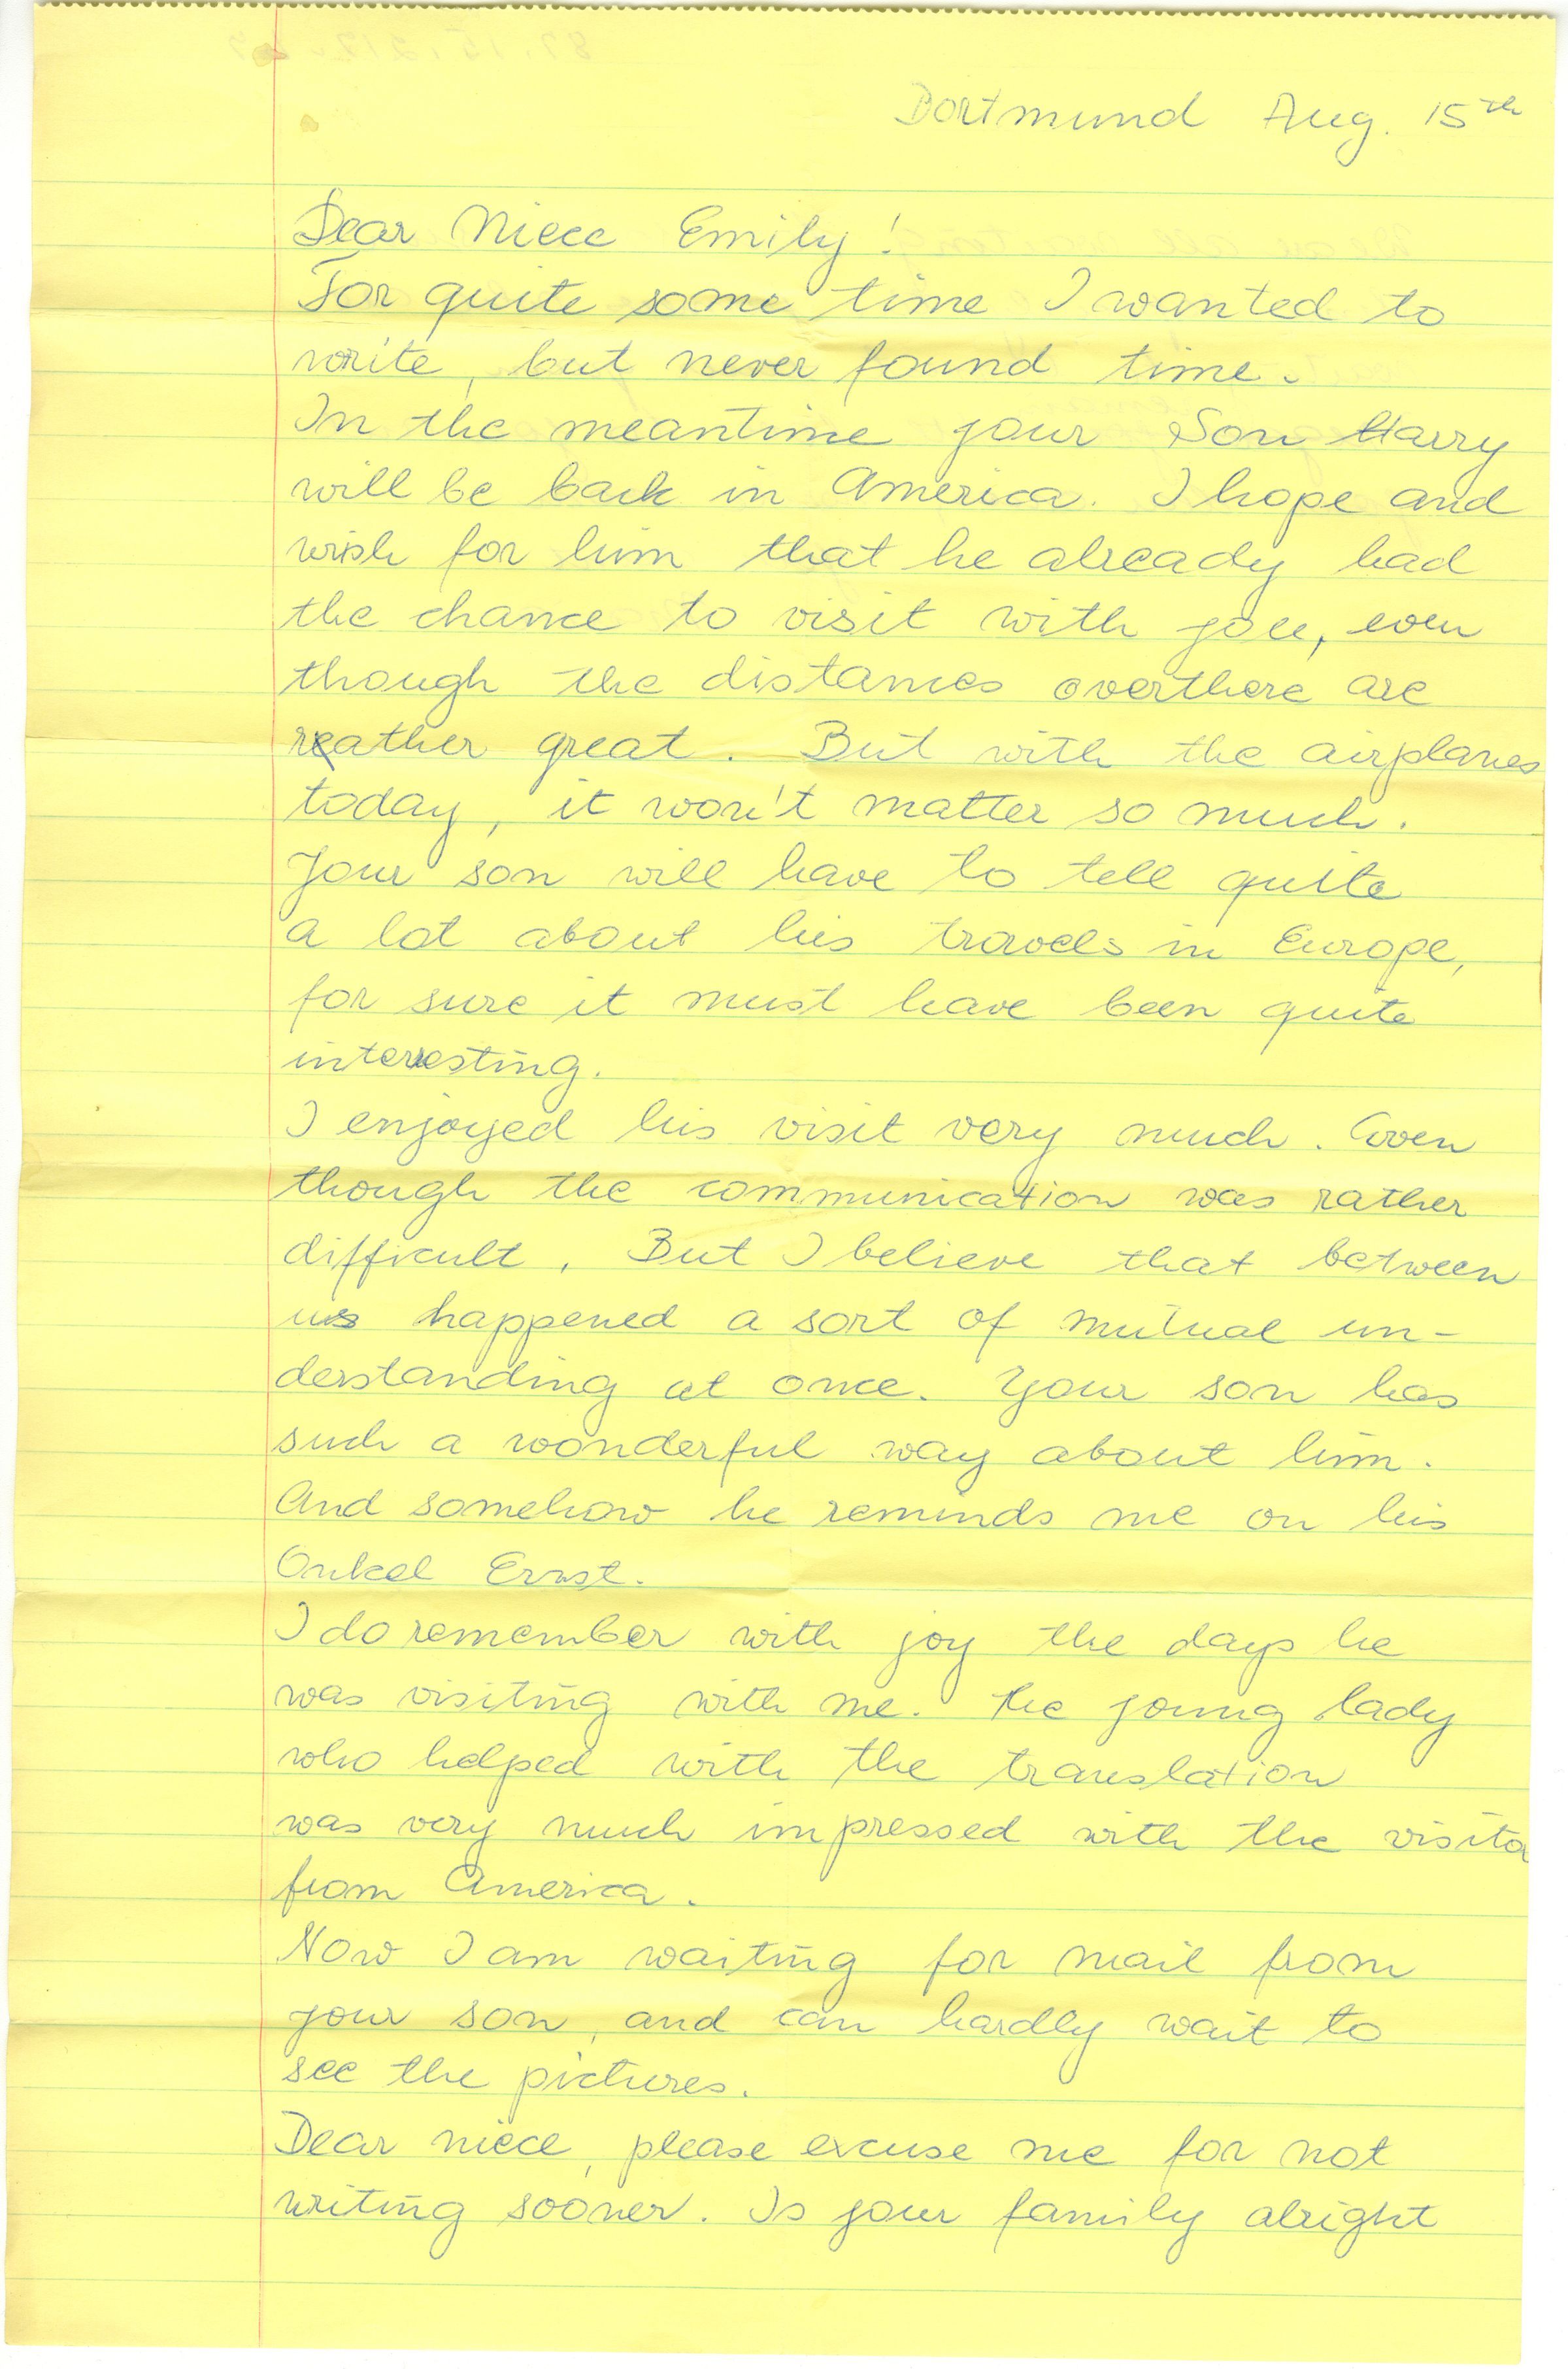 Dortmund Aug. 15th
Dear Niece Emily!
For quite some time I wanted to
write, but never found time.
In the meantime your Son Harry
will be back in America. I hope and
wish for him that he already had
the chance to visit with you, even
though the distances overthere are
reather great. But with the airplanes
today, it won't matter so much.
Your son will have to tell quite
a lot about his travels in Europe,
for sure it must have been quite
interesting.
I enjoyed his visit very much. Even
though the communication was rather
difficult. But I believe that between
us happened a sort of mutual un-
derstanding at once. Your son has
such a wonderful way about him.
And somehow he reminds me on his
Onkel Ernst.
I do remember with joy the days he
was visiting with me. The young lady
who helped with the translation
was very much impressed with the visitor
from America.
Now I am waiting for mail from
your son, and can hardly wait to
see the pictures.
Dear niece, please excuse me for not
writing sooner. Is your family alright